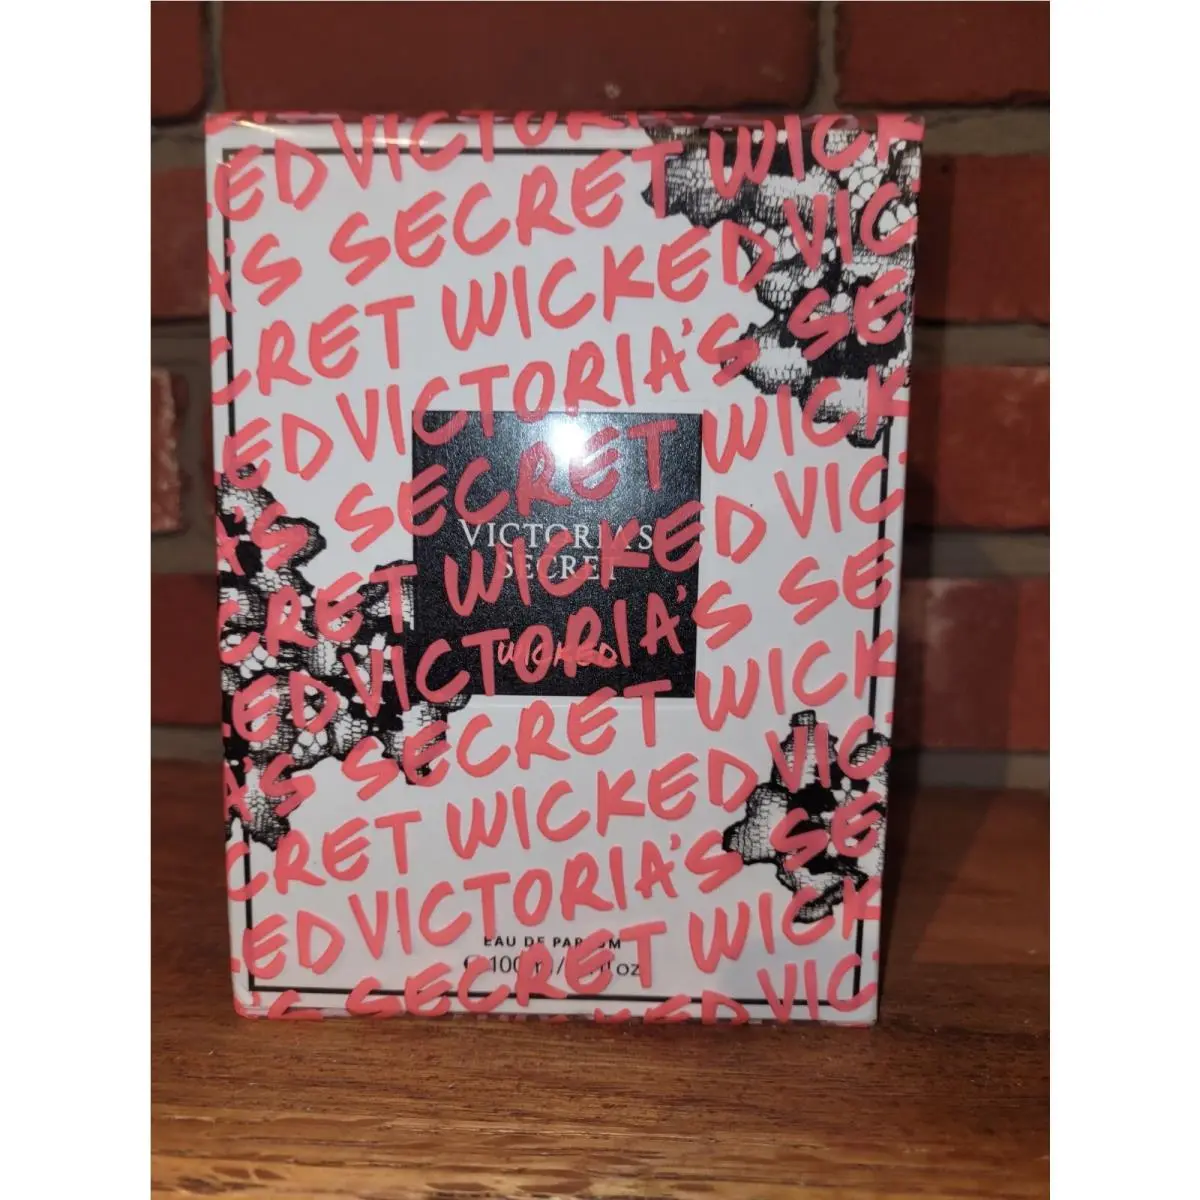 ED VICTORIA
'S SECRET WICK
CRET WICKED VIC
ED VICTORIA'S SE
'S SECRET WICK
CRET WICKED VIC
ED VICTORIA'S SE
'S SECRET WICK
CRET WICKED VIC
ED VICTORIA'S SE
'S SECRET WICK
WICKED VIC
VICTORIA'S
SECRET
WICKED
EAU DE PARFUM
e 100 ml / fl oz